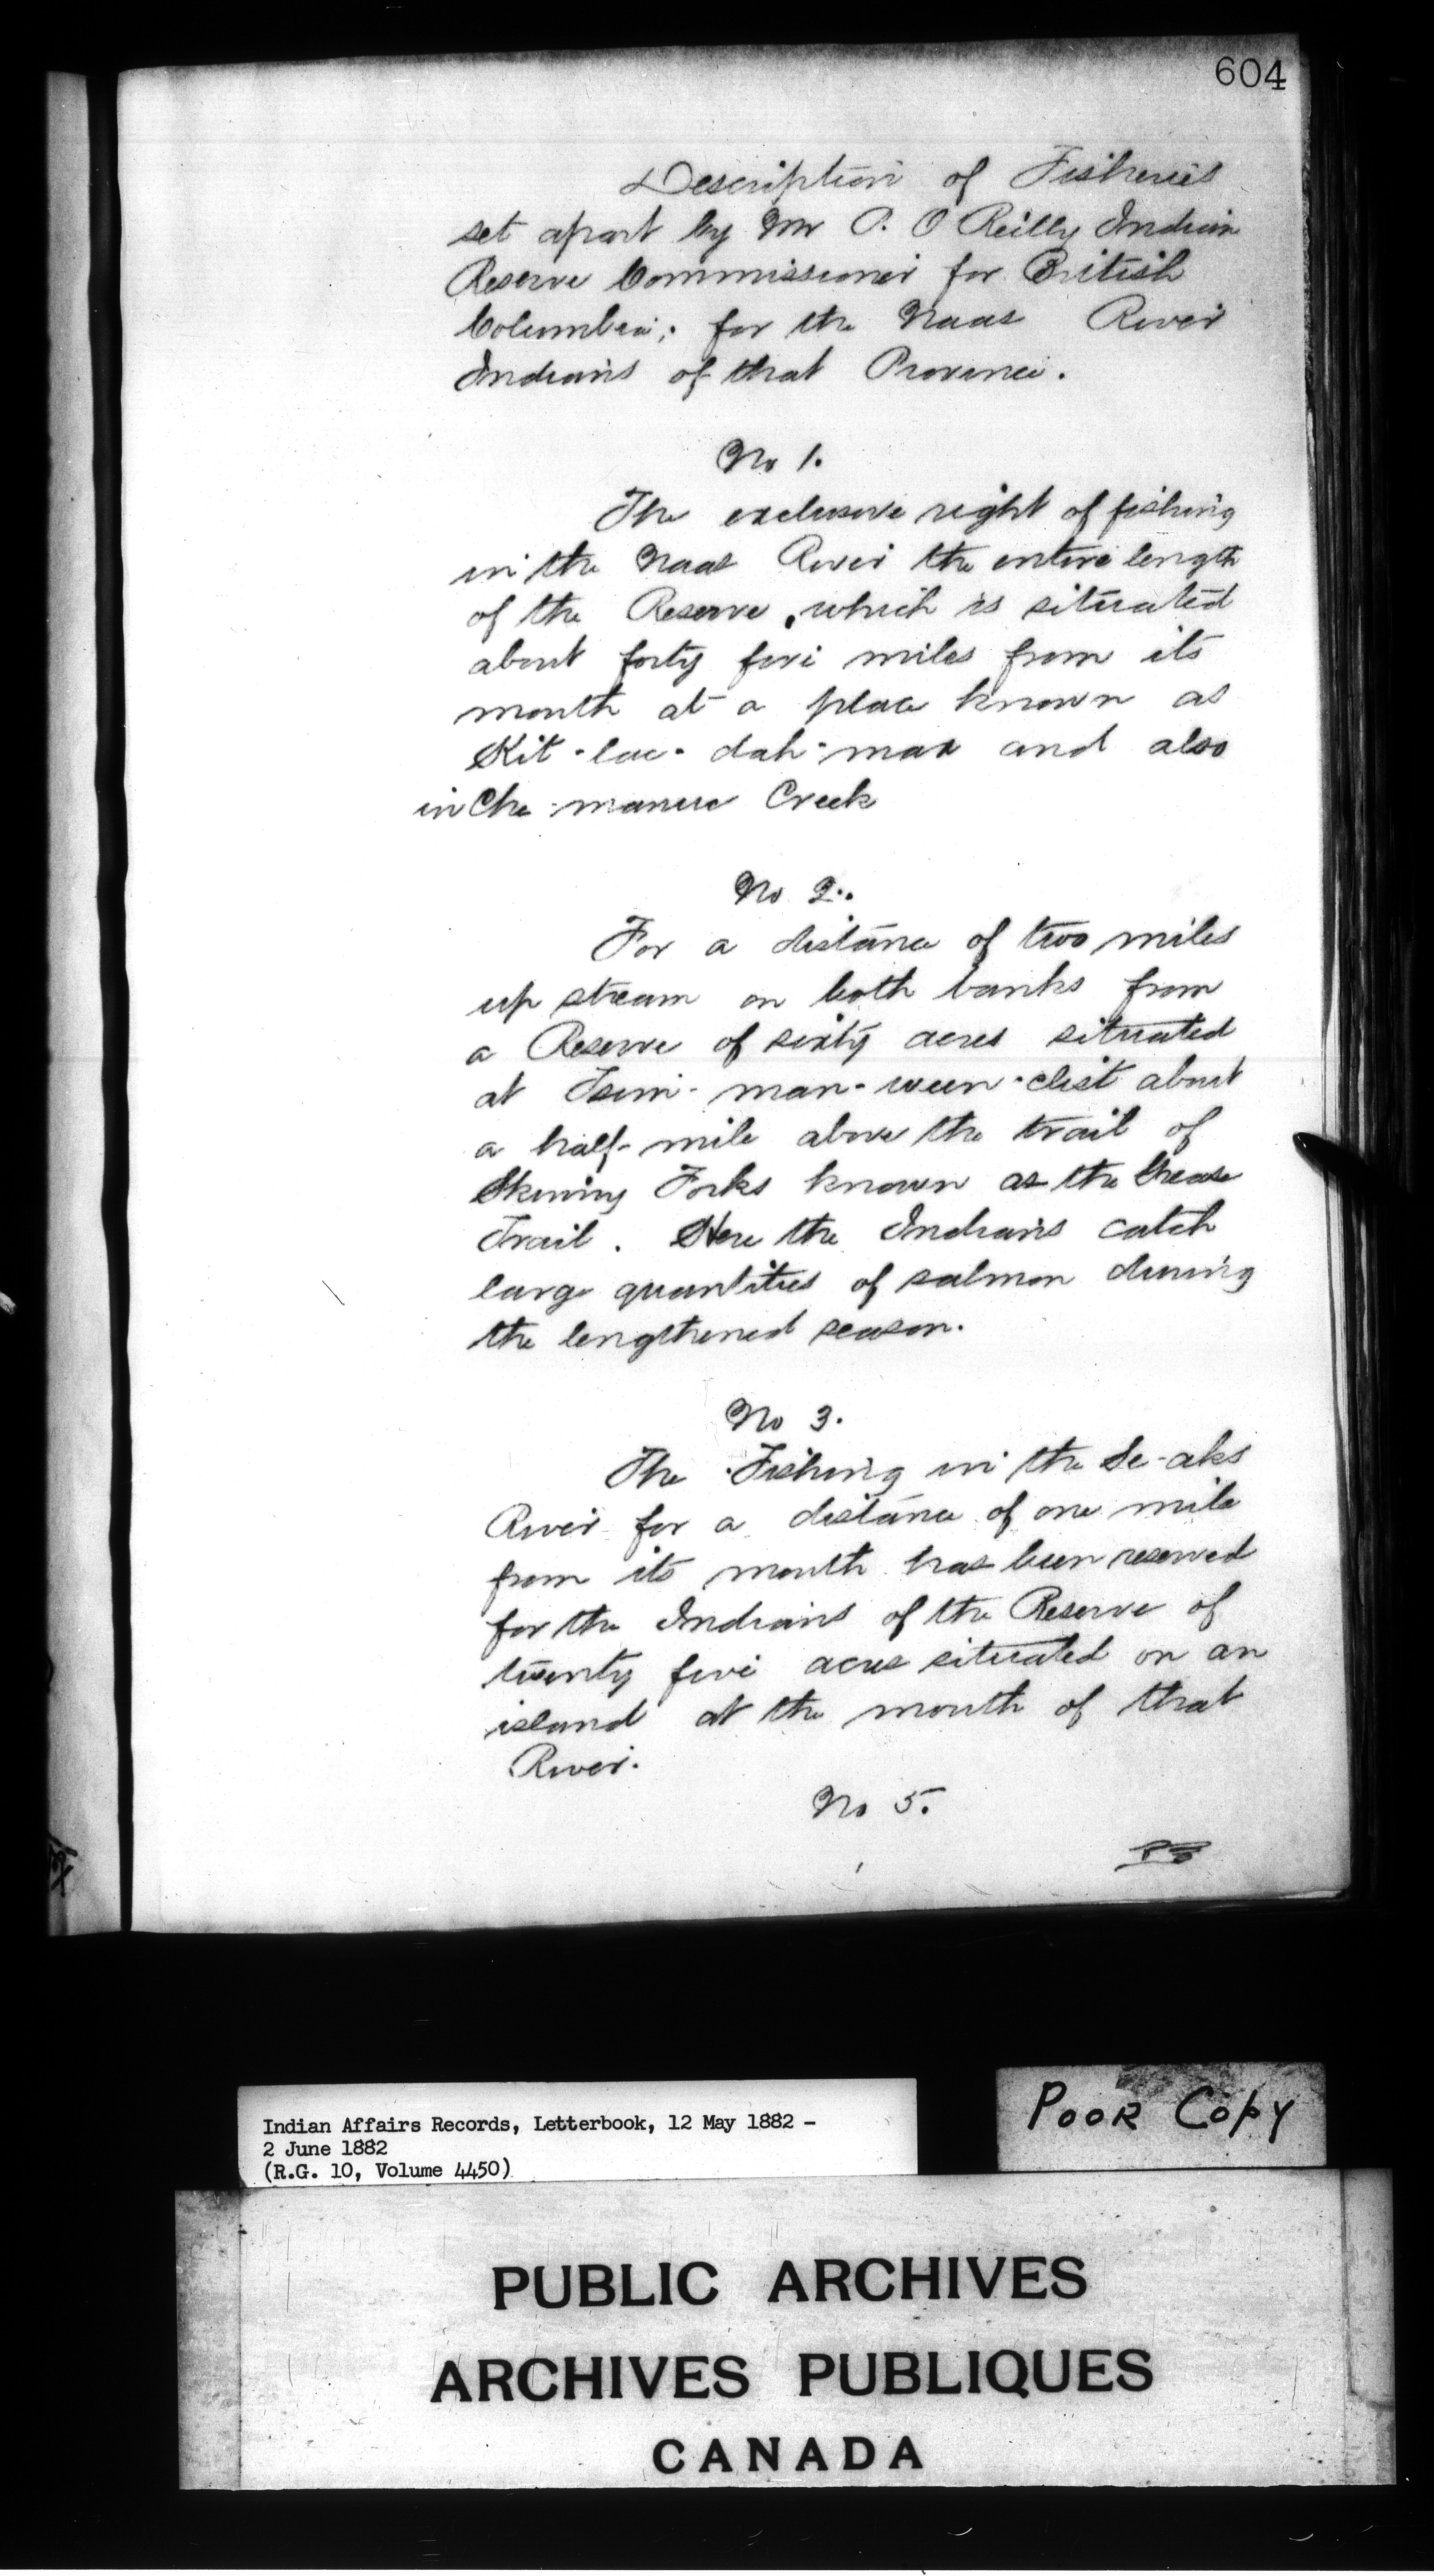 604
Description of Fisheries
set apart by Mr P. O Reilly Indian
Reserve Commissioner for British
Columbia; for the Naas River
Indians of that Province.
No 1.
The exclusive right of fishing
in the Naas River the entire length
of the Reserve, which is situated
about forty five miles from its
mouth at a place known as
Kit-lac-dah-max and also
in Che-manuc Creek
No 2.
For a distance of two miles
up stream on both banks from
a Reserve of sixty acres situated
at Tsim-man-ween-clist about
a half-mile above the trail of
Skeeny Forks known as the Grease
Trail. Here the Indians catch
large quantities of salmon during
the lengthened season.
No 3.
The Fishing in the Se-aks
River for a distance of one mile
from its mouth has been reserved
for the Indians of the Reserve of
twenty five acres situated on an
island at the mouth of that
River.
No 5.
Indian Affairs Records, Letterbook, 12 May 1882 -
2 June 1882
(R.G. 10, Volume 4450)
Poor Copy
PUBLIC ARCHIVES
ARCHIVES PUBLIQUES
CANADA